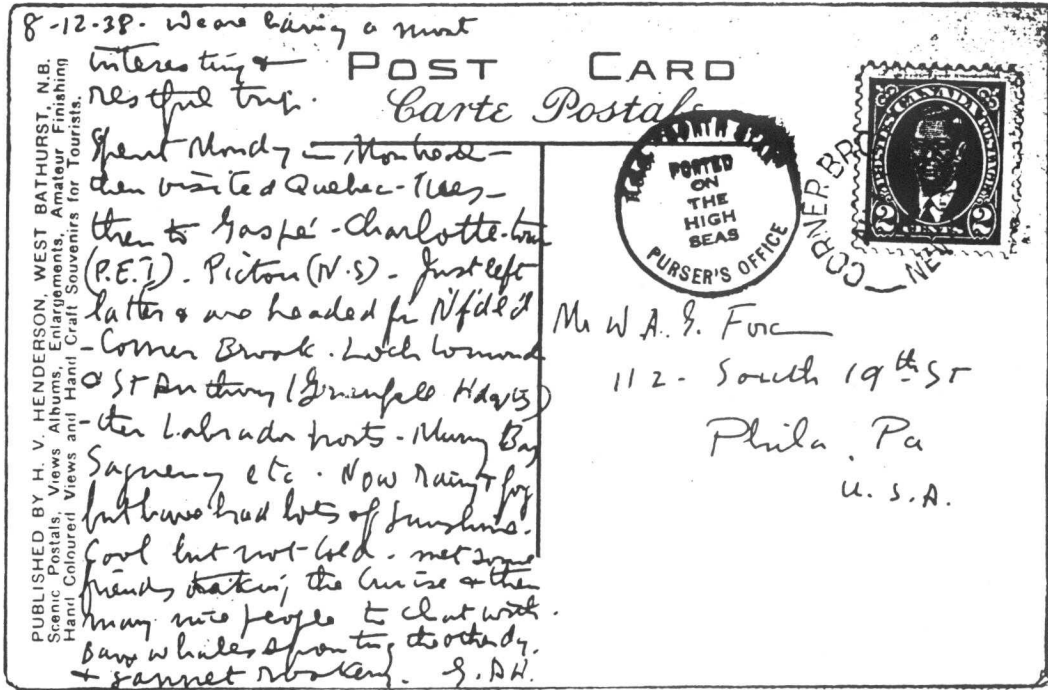 8-12-38. We are having a most
interesting &
restful trip.
Spent Monday in Montreal -
then visited Quebec - Tues -
then to Gaspé - Charlotte-town
(P.E.I). Pictou (N.S) - Just left
latter & are headed for N'f'dl'd
- Corner Brook. Loch Lomond
& St Anthony (Grenfell Hdqts)
- then Labrador ports - Murray Bay
Saguenay etc. Now rain & fog
but have had lots of sunshine.
Cool but not cold. met some
friends taking the cruise & then
many nice people to chat with.
Saw whales spouting the other dy.
& gannet rookery.
PUBLISHED BY H. V. HENDERSON, WEST BATHURST, N.B.
Scenic Postals, Views Albums, Enlargements, Amateur Finishing
Hand Coloured Views and Hand Craft Souvenirs for Tourists.
POST CARD
Carte Postale
POSTED
ON
THE
HIGH
SEAS
PURSER'S OFFICE
CORNER BRO
POSTES CANADA POSTAGE
2 2
CENTS
Mr W. A.
112 - South 19th St
Phila. Pa
U.S.A.